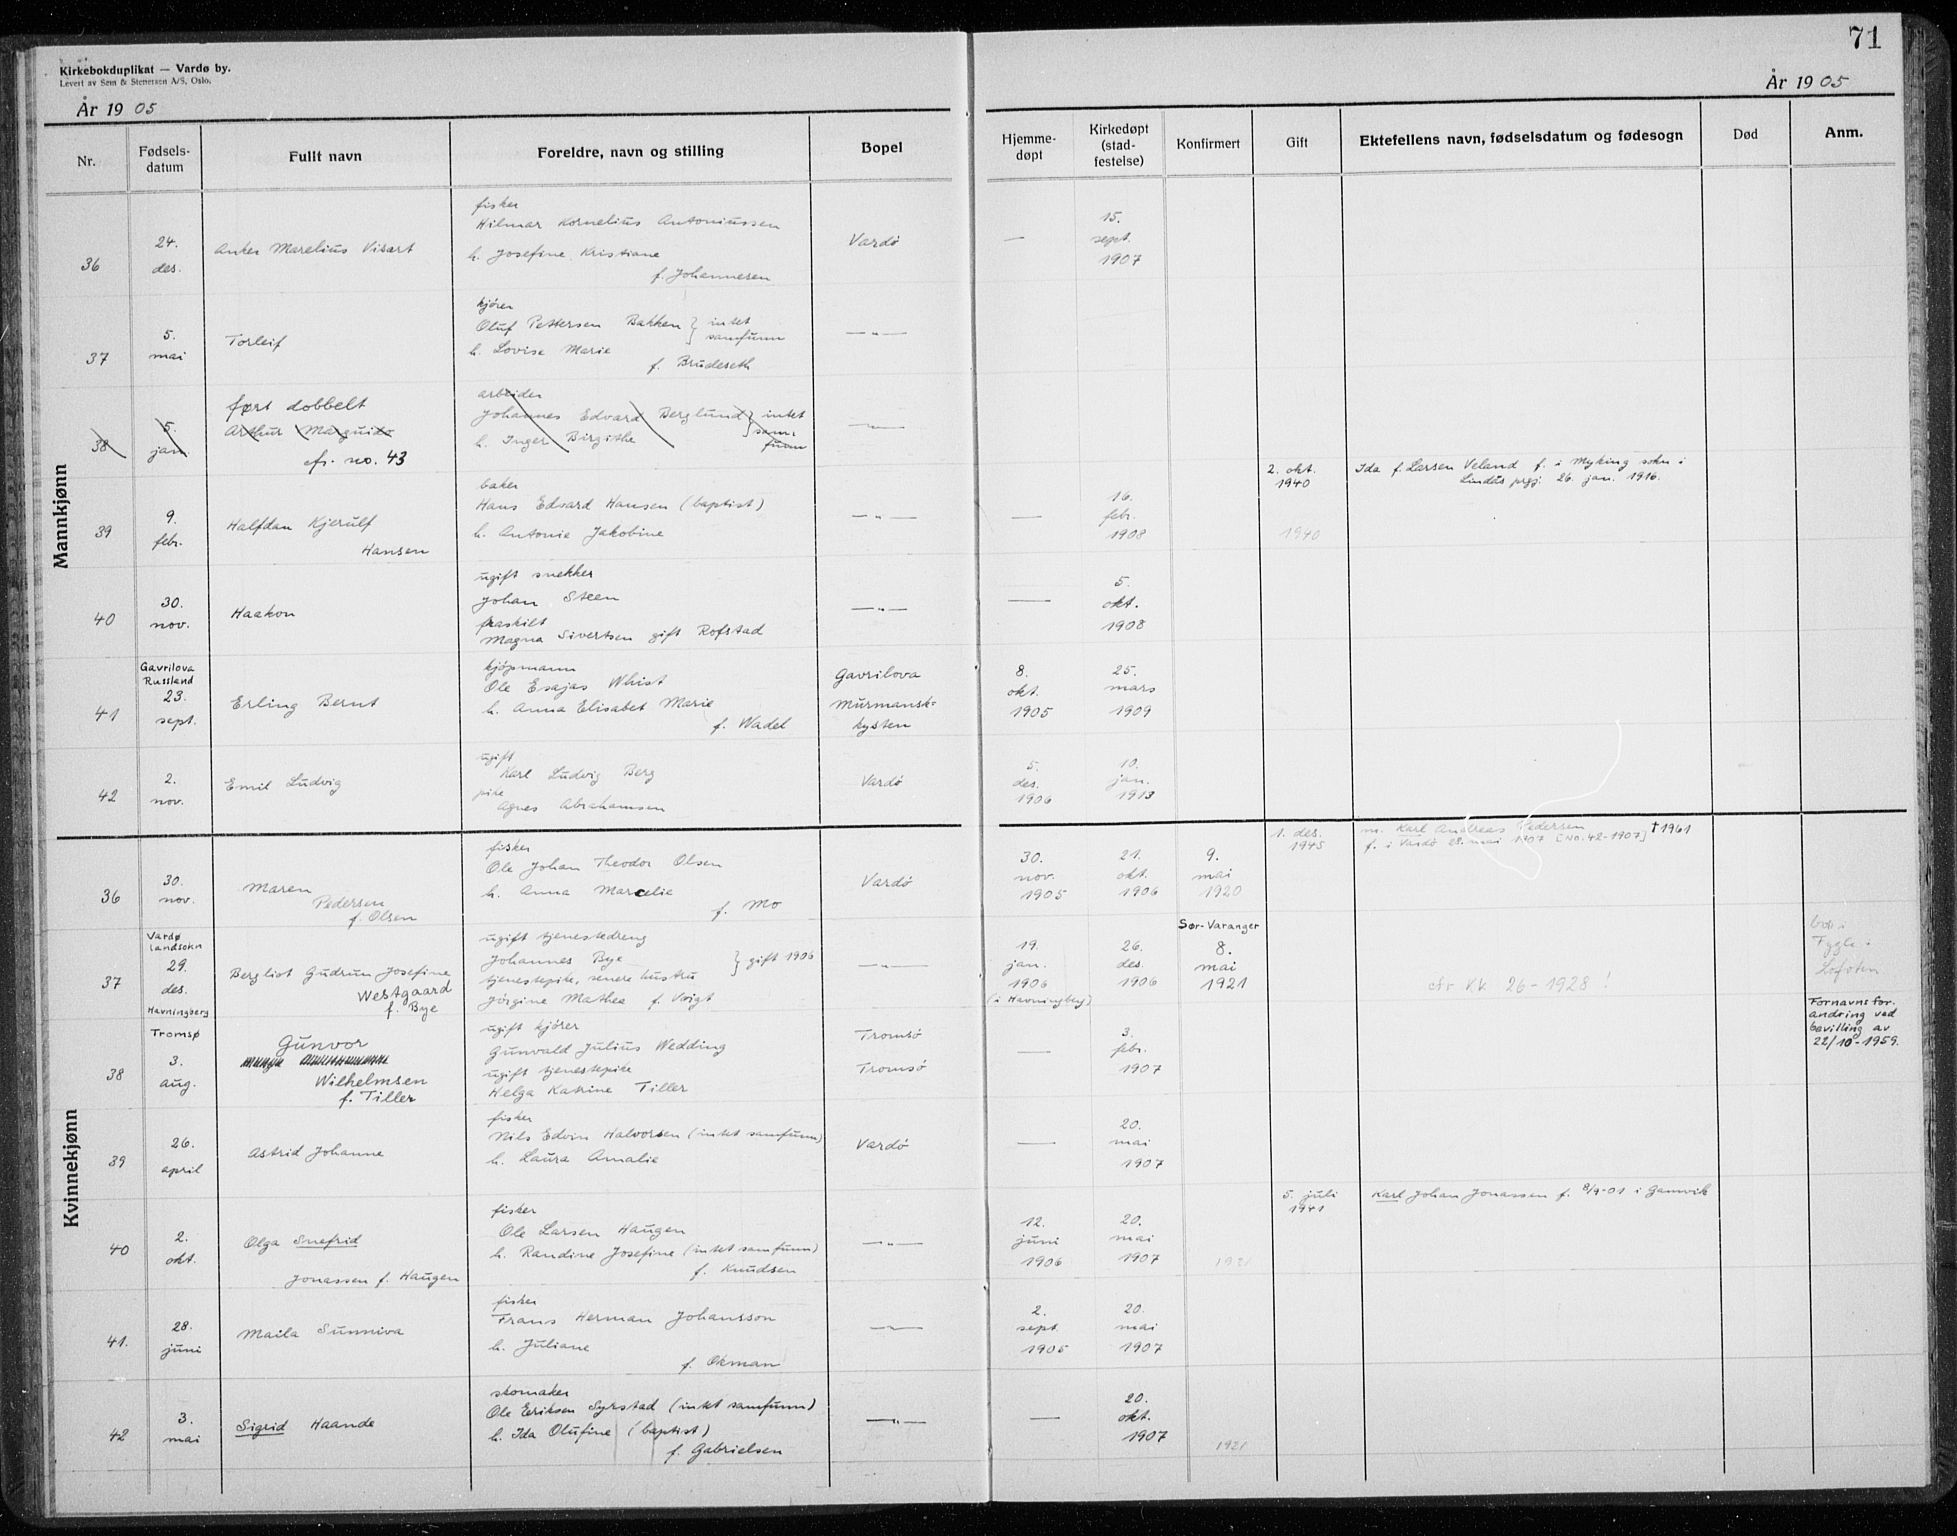 71
Kirkebokduplikat — Vardø by.
Levert av Sem & Stenersen A/S, Oslo.
År 1905
År 1905
Nr.
Fødsels-
datum
Fullt navn
Foreldre, navn og stilling
Bopel
Hjemme-
døpt
Kirkedøpt
(stad-
festelse)
Konfirmert
Gift
Ektefellens navn, fødselsdatum og fødesogn
Død
Anm.
Mannkjønn
36
24.
des.
Anker Marelius Visart
fisker
Hilmar Kornelius Antoniussen
h. Josefine Kristiane
f. Johannesen
Vardø
—
15.
sept.
1907
37
5.
mai
Torleif
kjører
Oluf Pettersen Bakken } intet
samfunn
h. Lovise Marie
f. Brudeseth
—"—
38
5.
jan.
ført dobbelt
Arthur Marguido
cfr. no. 43
arbeider
Johannes Edvard Berglund } intet
sam-
funn
h. Inger Birgithe
—"—
39
9.
febr.
Halfdan Kjerulf
Hansen
baker
Hans Edvard Hansen (baptist)
h. Antonie Jakobine
—"—
—
16.
febr.
1908
2. okt.
1940
1940
Ida f. Larsen Veland f. i Myking sokn i
Lindås prgj. 26. jan. 1916.
40
30.
nov.
Haakon
ugift snekker
Johan Steen
fraskilt
Magna Sivertsen gift Rofstad
—"—
—
5.
okt.
1908
41
Gavrilova
Russland
23.
sept.
Erling Bernt
kjøpmann
Ole Esajas Whist
h. Anna Elisabet Marie
f. Wadel
Gavrilova
Murmansk-
kysten
8.
okt.
1905
25.
mars
1909
42
2.
nov.
Emil Ludvig
ugift
Karl Ludvig Berg
pike
Agnes Abrahamsen
Vardø
5.
des.
1906
10.
jan.
1913
Kvinnekjønn
36
30.
nov.
Maren
Pedersen
f. Olsen
fisker
Ole Johan Theodor Olsen
h. Anna Marcelie
f. Mo
Vardø
30.
nov.
1905
21.
okt.
1906
9.
mai
1920
1. des.
1945
m. Karl Andreas Pedersen
f. i Vardø 28. mai 1907 [No. 42-1907] †1961
37
Vardø
landsokn
29.
des.
Havningberg
Bergliot Gudrun Josefine
Westgaard
f. Bye
ugift tjenestedreng
Johannes Bye } gift 1906
tjenestepike, senere hustru
Jörgine Mathea f. Voigt
—"—
19.
jan.
1906
(i Havningberg)
26.
des.
1906
Sør-Varanger
8.
mai
1921
cfr KK 26-1928 !
bor i
Fygle i
Lofoten
38
Tromsø
3.
aug.
Gunvor
Wilhelmsen
f. Tiller
ugift kjører
Gunvald Julius Wedding
ugift tjenestepike
Helga Katrine Tiller
Tromsø
Tromsø
—
3.
febr.
1907
Fornavnsfor.
andring ved
bevilling av
22/10-1959.
39
26.
april
Astrid Johanne
fisker
Nils Edvin Halvorsen (intet samfunn)
h. Laura Amalie
Vardø
—
20.
mai
1907
40
2.
okt.
Olga Snefrid
Jonassen f. Haugen
fisker
Ole Larsen Haugen
h. Randine Josefine (intet samfunn)
f. Knudsen
—"—
12.
juni
1906
20.
mai
1907
1921
5. juli
1941
Karl Johan Jonassen f. 8/9-01 i Gamvik
41.
28.
juni
Maila Sunniva
fisker
Frans Herman Johansson
h. Juliane
f. Okman
—"—
2.
sept.
1905
20.
mai
1907
42
3.
mai
Sigrid Haande
skomaker
Ole Eriksen Syrstad (intet samfunn)
h. Ida Olufine (baptist)
f. Gabrielsen
—"—
—
20.
okt.
1907
1921